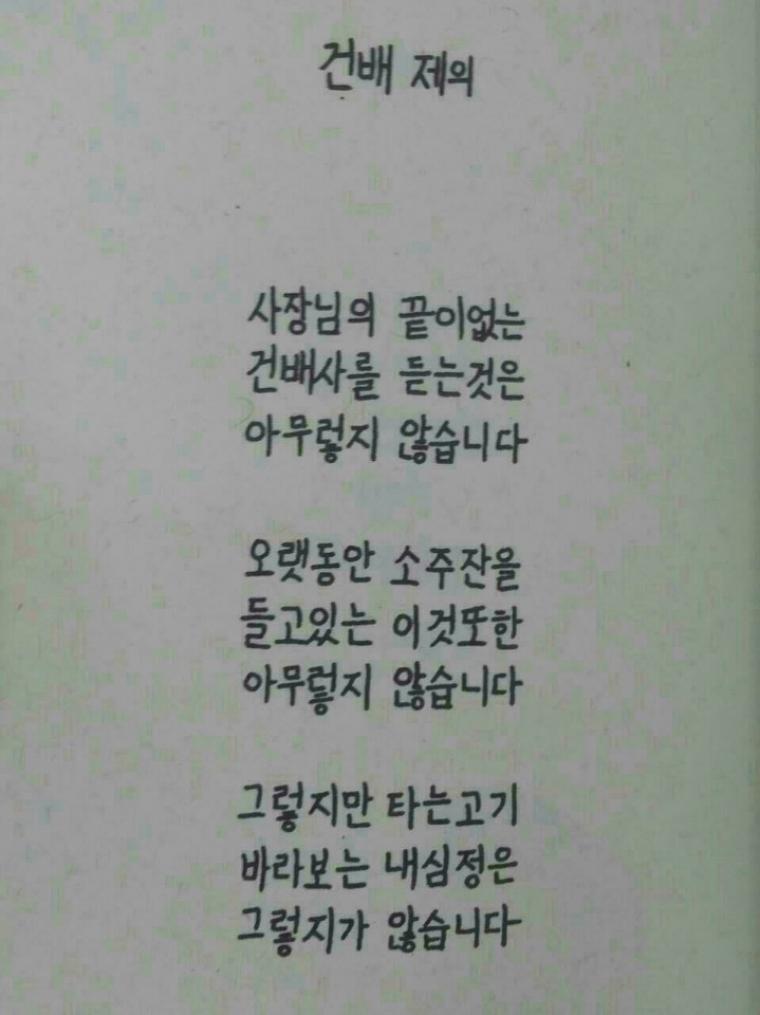 건배 제의
사장님의 끝이없는
건배사를 듣는것은
아무렇지 않습니다
오랫동안 소주잔을
들고있는 이것또한
아무렇지 않습니다
그렇지만 타는고기
바라보는 내심정은
그렇지가 않습니다